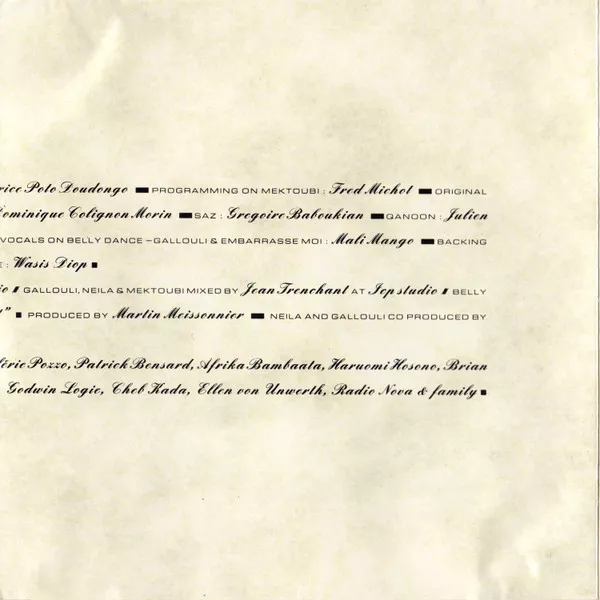 rice Poto Doudongo ▬ PROGRAMMING ON MEKTOUBI : Fred Michot ▬ ORIGINAL
Dominique Colignon Morin ▬ SAZ : Gregoire Baboukian ▬ QANOON : Julien
VOCALS ON BELLY DANCE – GALLOULI & EMBARRASSE MOI : Mali Mango ▬ BACKING
E : Wasis Diop ■
io ▮ GALLOULI, NEILA & MEKTOUBI MIXED BY Jean Trenchant AT Icp studio ▮ BELLY
" ■ PRODUCED BY Martin Meissonnier ▬ NEILA AND GALLOULI CO PRODUCED BY
lérie Pozzo, Patrick Bensard, Afrika Bambaata, Haruomi Hosono, Brian
Godwin Logie, Cheb Kada, Ellen von Unwerth, Radio Nova & family ■